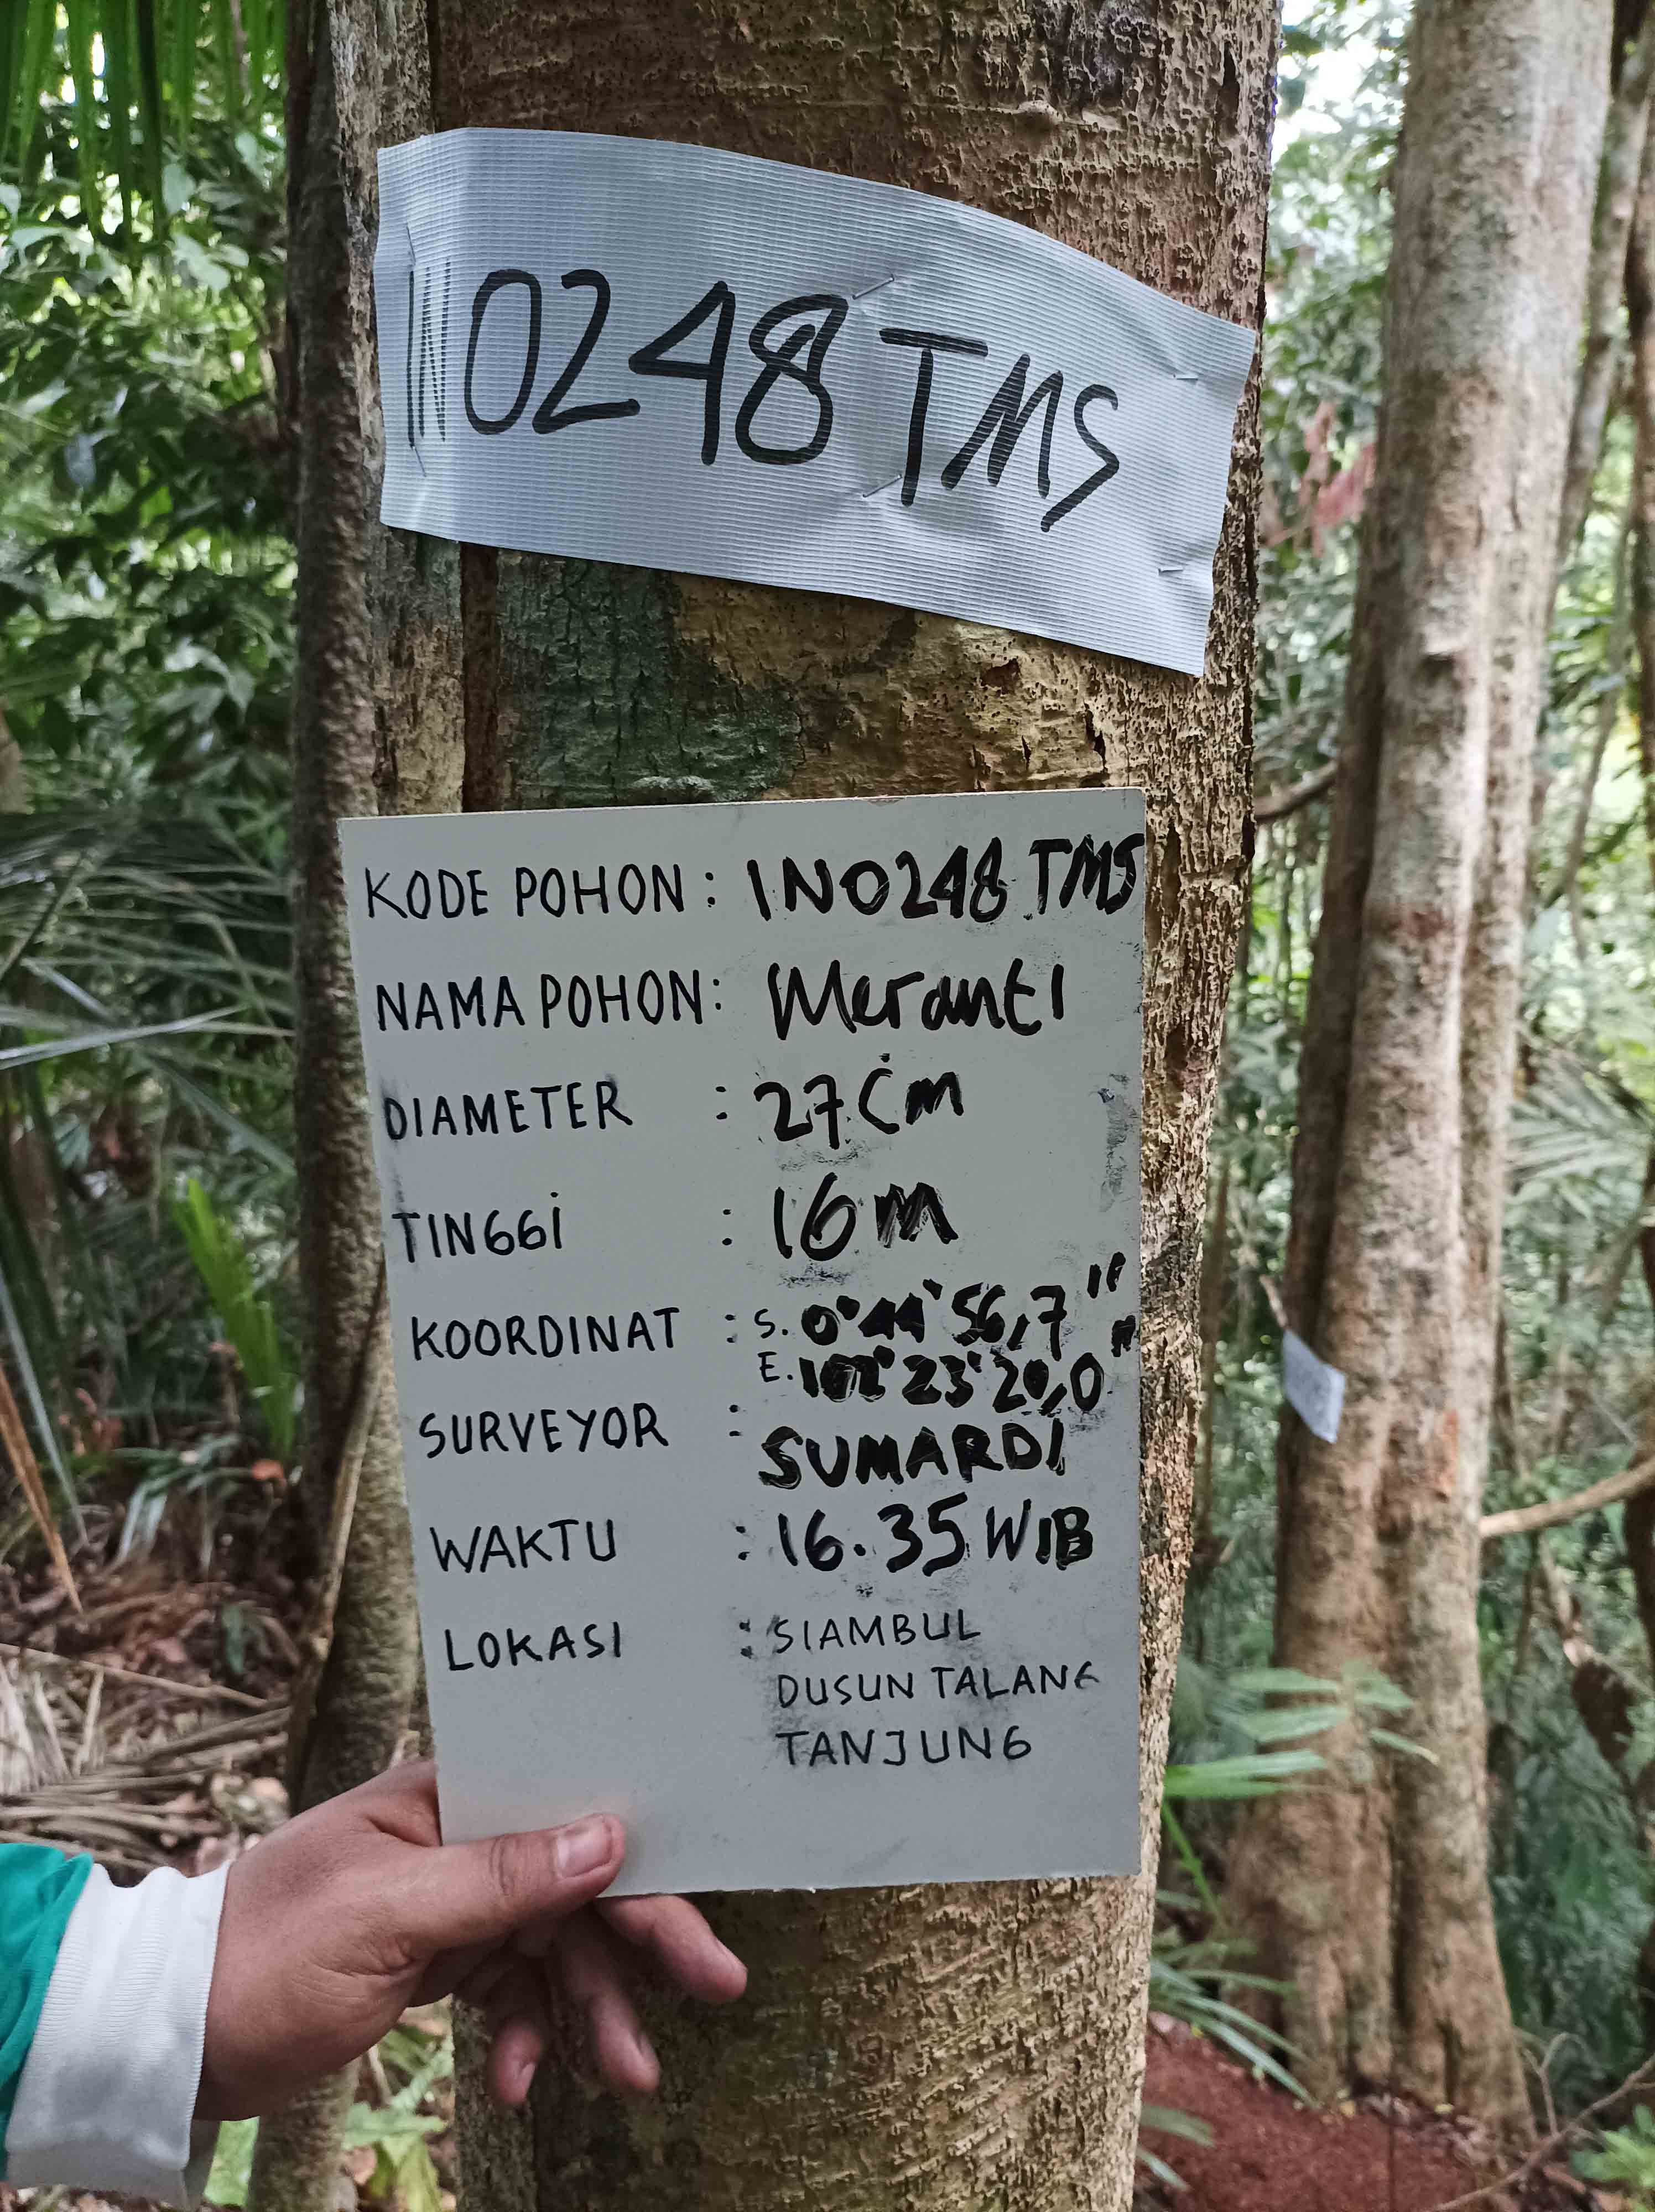 IN0248 TMS
KODE POHON : IN0248 TMS
NAMA POHON : Meranti
DIAMETER : 27 Cm
TINGGi : 16 M
KOORDINAT : S. 0°44'56,7"
E. 102°23'20,0"
SURVEYOR : SUMARDI
WAKTU : 16.35 WIB
LOKASI : SIAMBUL
DUSUN TALANG
TANJUNG